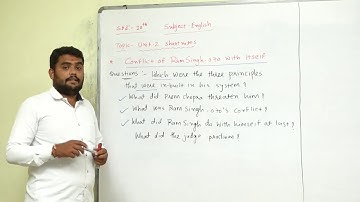 Std:- 10th Subject English
Topic - Unit 2 short notes
* Conflict of Ram Singh :- 070 with itself
Questions - Which were the three principles
that were inbuilt in his system?
✓ What did Prem Chopra threaten him?
✓ What was Ram Singh 070's Conflict?
✓ What did Ram Singh do with himself at last?
What did the judge proclaim?